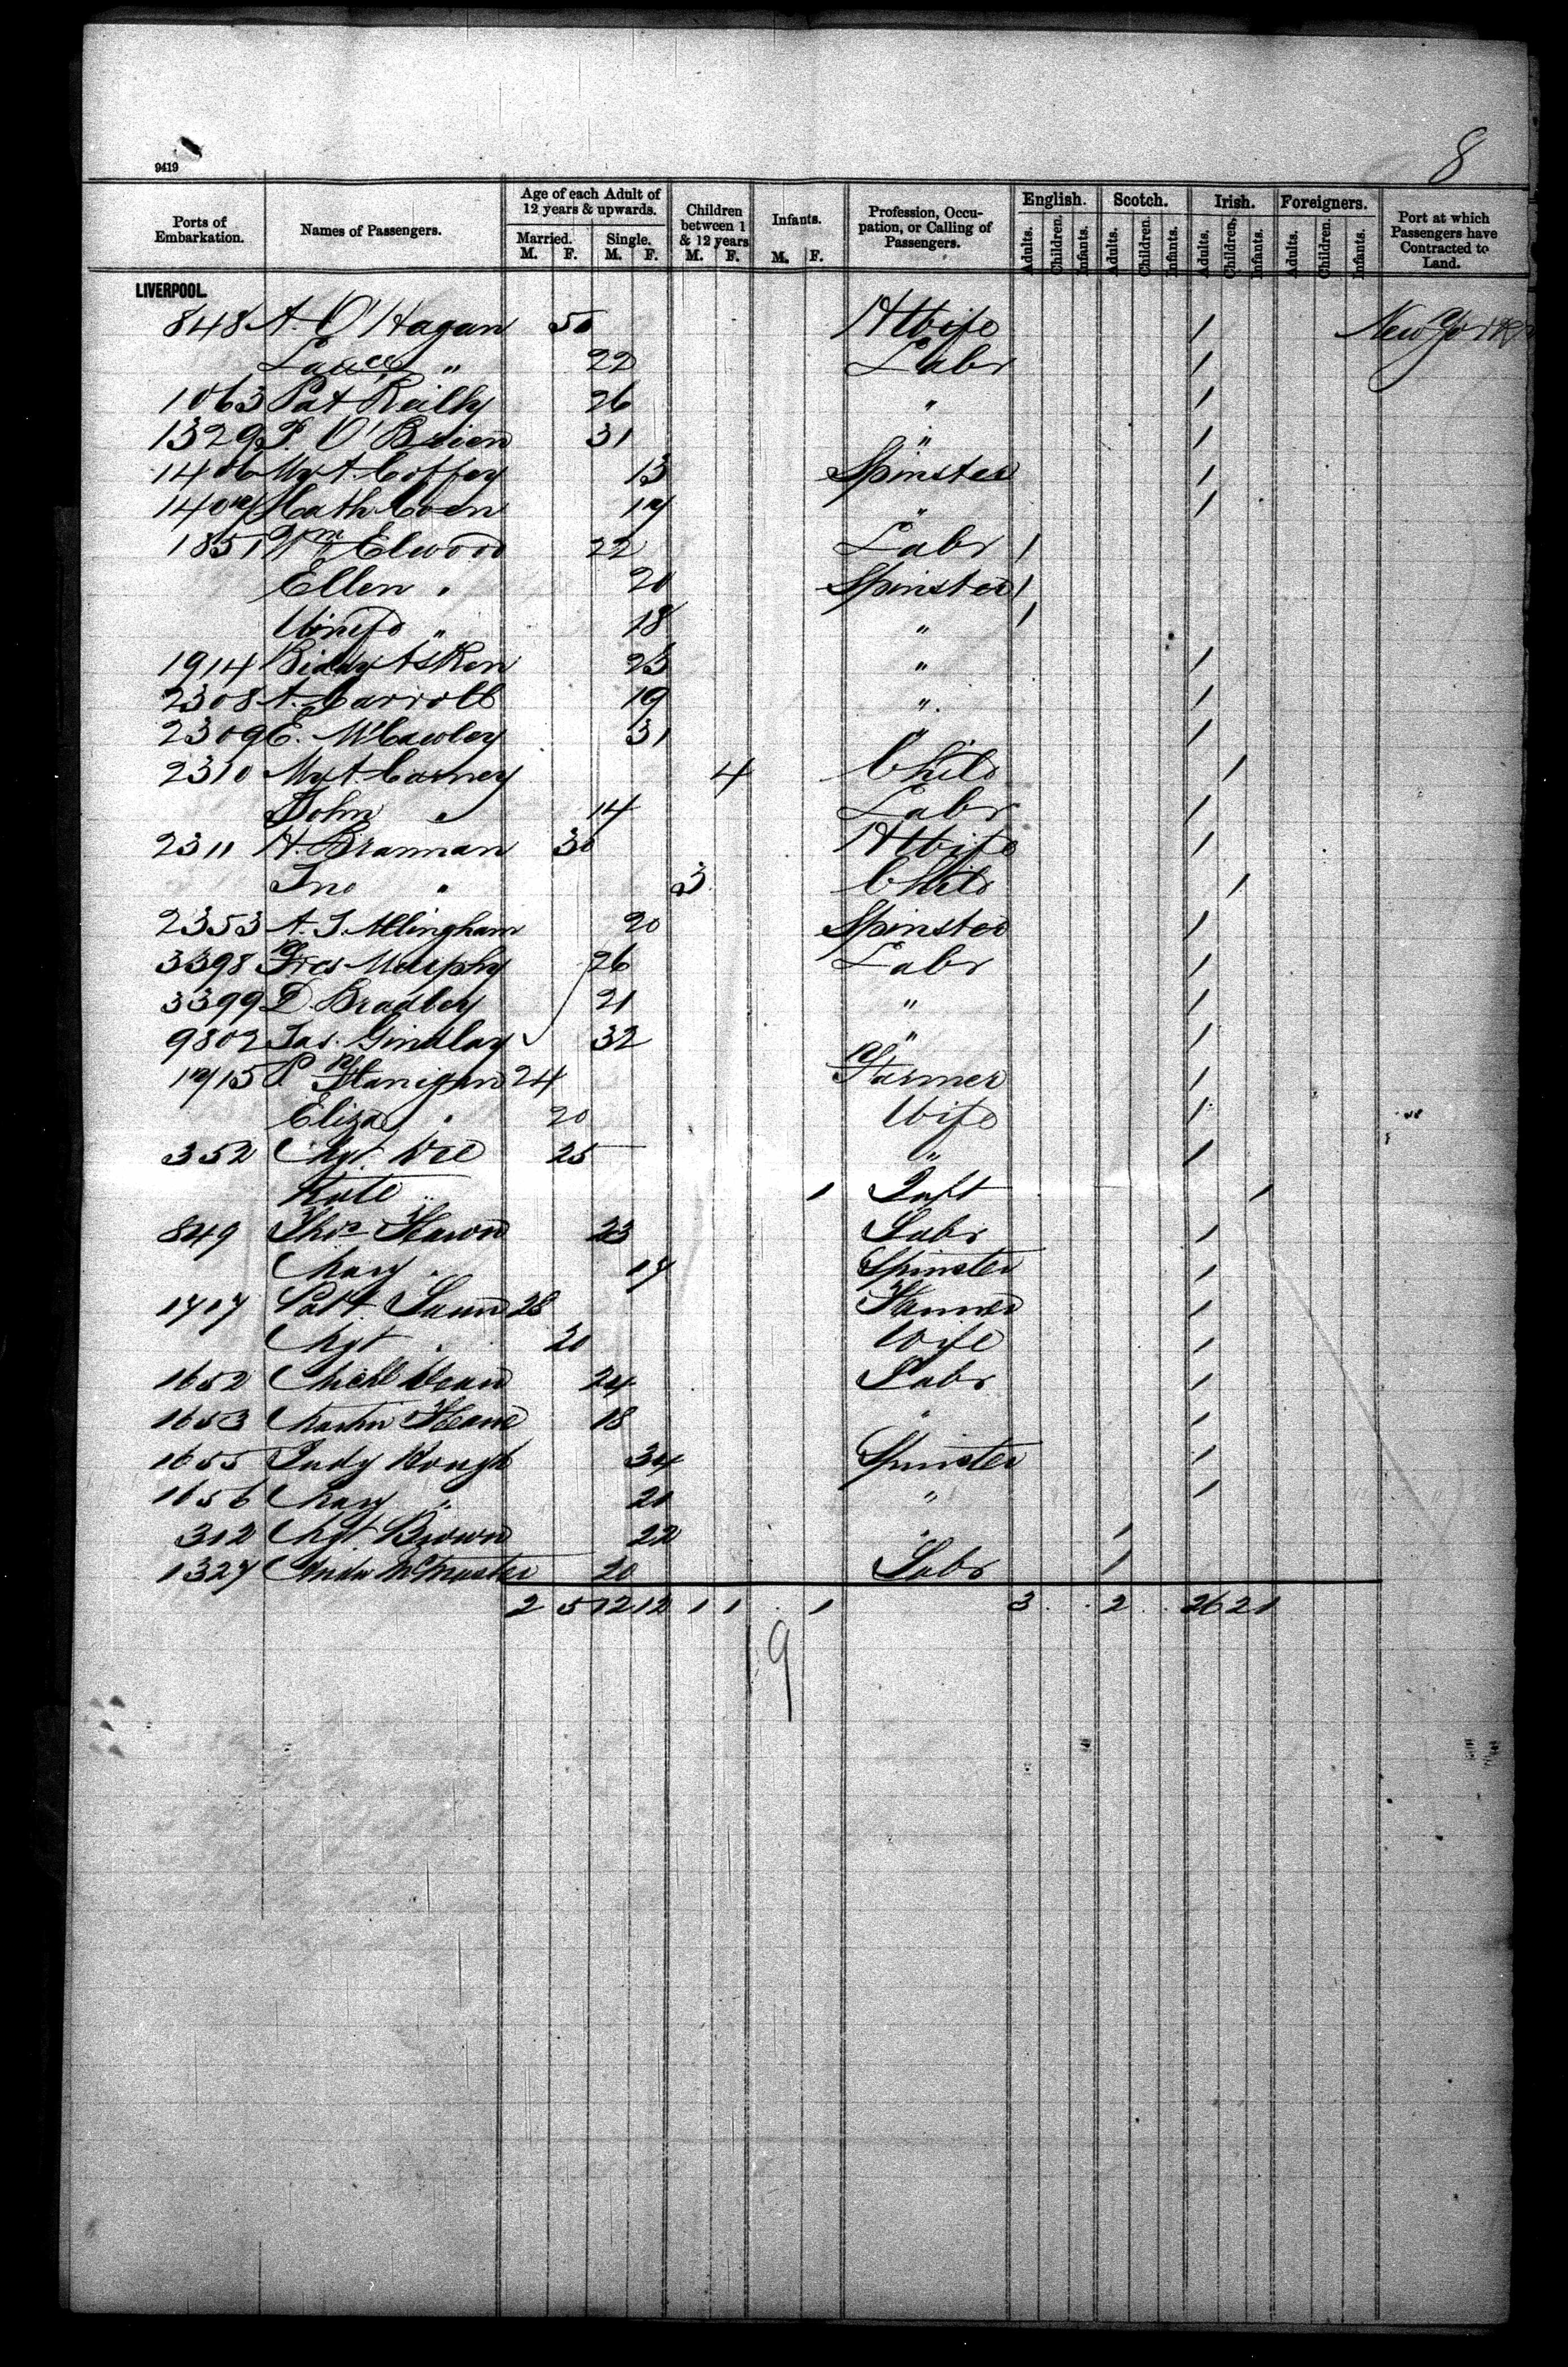 8
9419
Ports of Embarkation. Names of Passengers. Age of each Adult of 12 years & upwards. Married. M. F. Single. M. F. Children between 1 & 12 years M. F. Infants. M. F. Profession, Occupation, or Calling of Passengers. English. Adults. Children. Infants. Scotch. Adults. Children. Infants. Irish. Adults. Children. Infants. Foreigners. Adults. Children. Infants. Port at which Passengers have Contracted to Land.
LIVERPOOL.
848 A. O'Hagan 50 HWife / New York
" 22 Labr /
1063 Pat Reilly 26 " /
1329 P. O'Brien 31 " /
1406 Mgt. Coffey 13 Spinster /
1407 Cath Coen 17 " /
1851 Wm Elwood 22 Labr /
Ellen " 20 Spinster /
" 18 " /
1914 Biddy Asken 23 " /
2308 A. Carroll 19 " /
2309 E. McCawley 31 " /
2310 Mgt. Carney 4 Child /
John " 14 Labr /
2311 H. Brannan 30 HWife /
Jno " 3 Child /
2353 A. J. Allingham 20 Spinster /
3398 Frcs Murphy 26 Labr /
3399 D. Bradley 21 " /
9802 Jas. Gindlay 32 " /
1715 P. Flanigan 24 Farmer /
Eliza " 20 Wife /
352 Mgt. 25 " /
Kate " 1 Inft /
849 Thos 23 Labr /
Mary " 17 Spinster /
1717 Patk 28 Farmer /
Mgt " 20 Wife /
1652 Michl 24 Labr /
1653 Martin 18 " /
1655 Judy Hough 34 Spinster /
1656 Mary " 20 " /
312 Mgt. Brown 22 " /
1327 Andw McMaster 20 Labr /
2 5 12 12 1 1 . 1 3 . . 2 . . 26 2 1
19